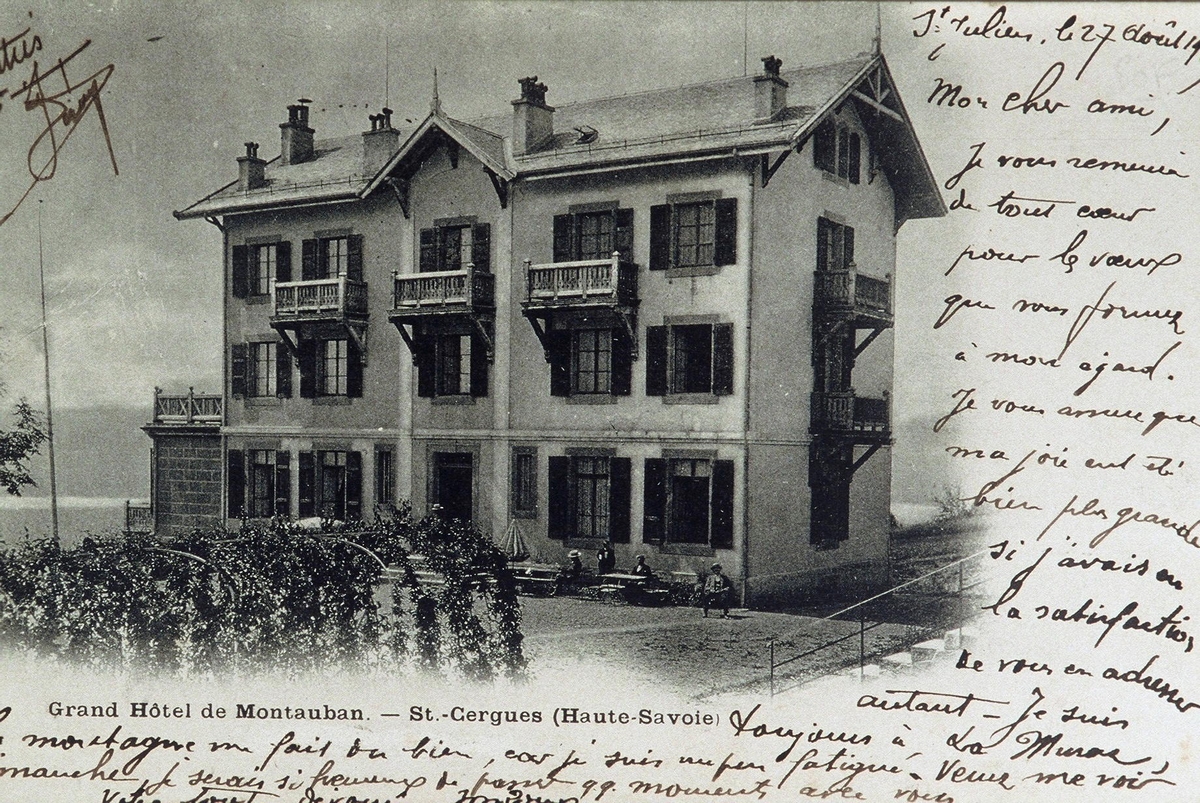 St Julien, le 27 Août 19
Mon cher ami,
Je vous remercie
de tout cœur
pour les vœux
que vous formez
à mon égard.
Je vous assure que
ma joie eut été
bien plus grande
si j'avais eu
la satisfaction
de vous en adresser
autant - Je suis
Grand Hôtel de Montauban. — St.-Cergues (Haute-Savoie)
toujours à La Muraz,
la montagne me fait du bien, car je suis un peu fatigué - Venez me voir
dimanche, je serais si heureux de passer qq. moments avec vous
Votre tout dévoué